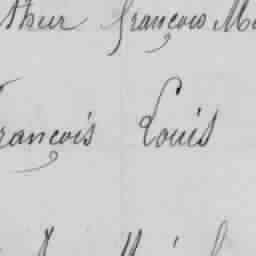 thur françois Ma
rançois Louis